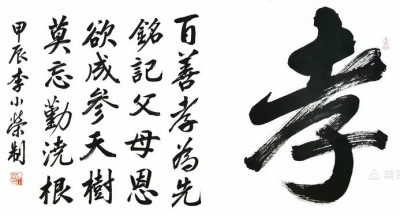 孝
百善孝為先
銘記父母恩
欲成參天樹
莫忘勤澆根
甲辰李小榮制